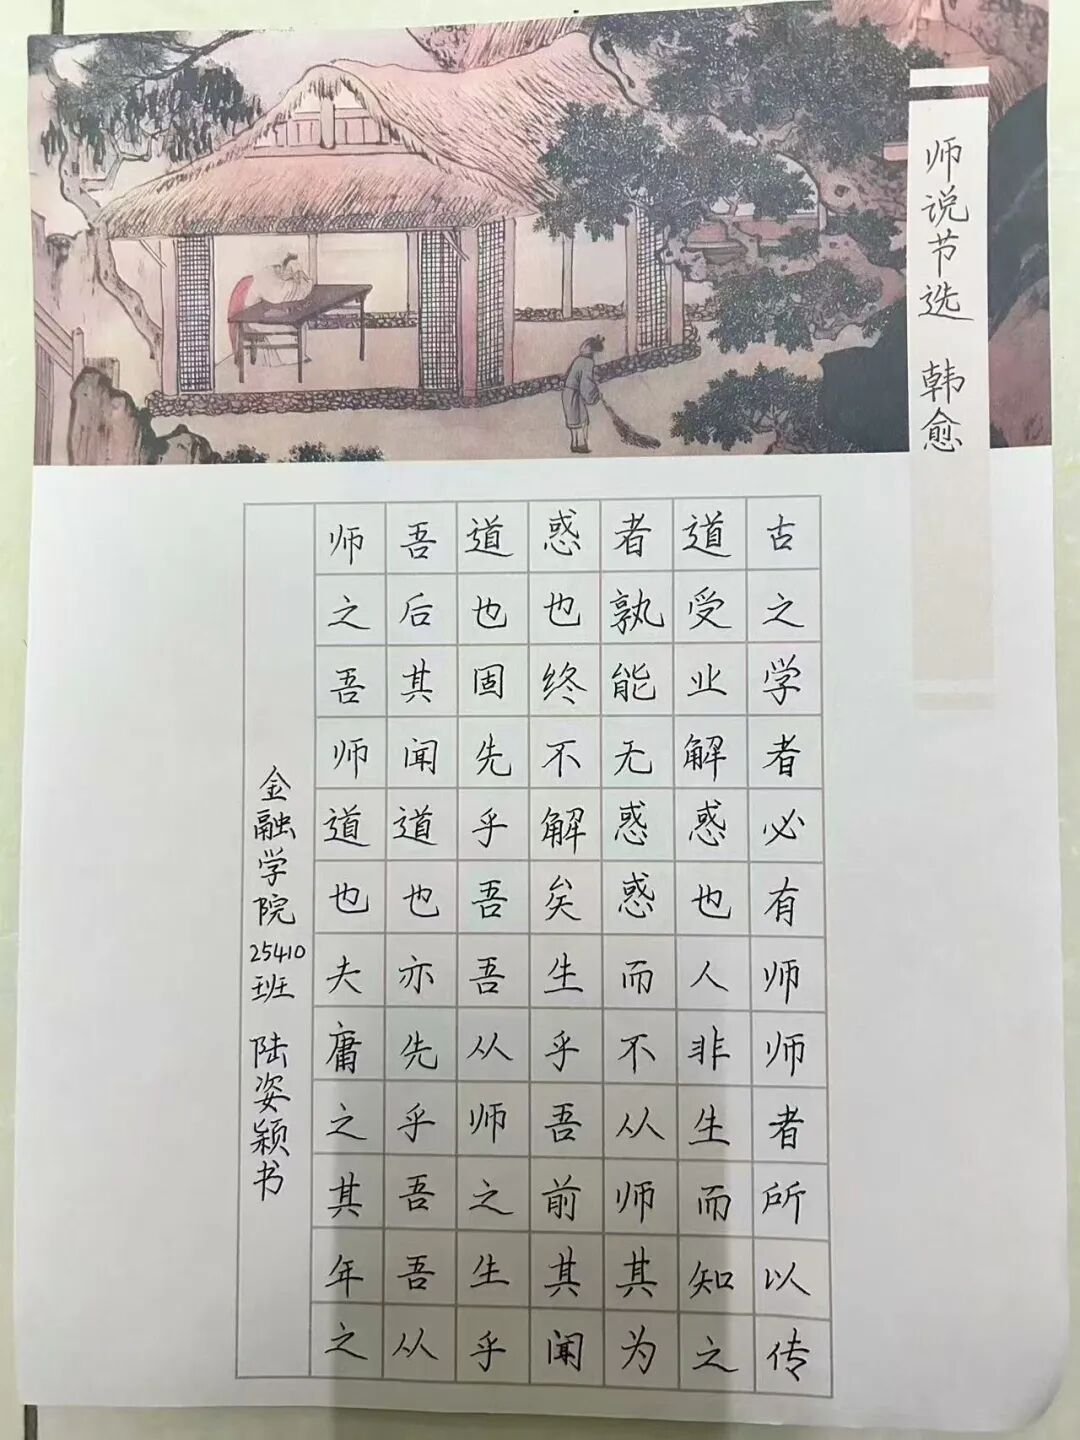 师说节选 韩愈
古之学者必有师师者所以传
道受业解惑也人非生而知之
者孰能无惑惑而不从师其为
惑也终不解矣生乎吾前其闻
道也固先乎吾吾从师之生乎
吾后其闻道也亦先乎吾吾从
师之吾师道也夫庸之其年之
金融学院25410班 陆姿颖书